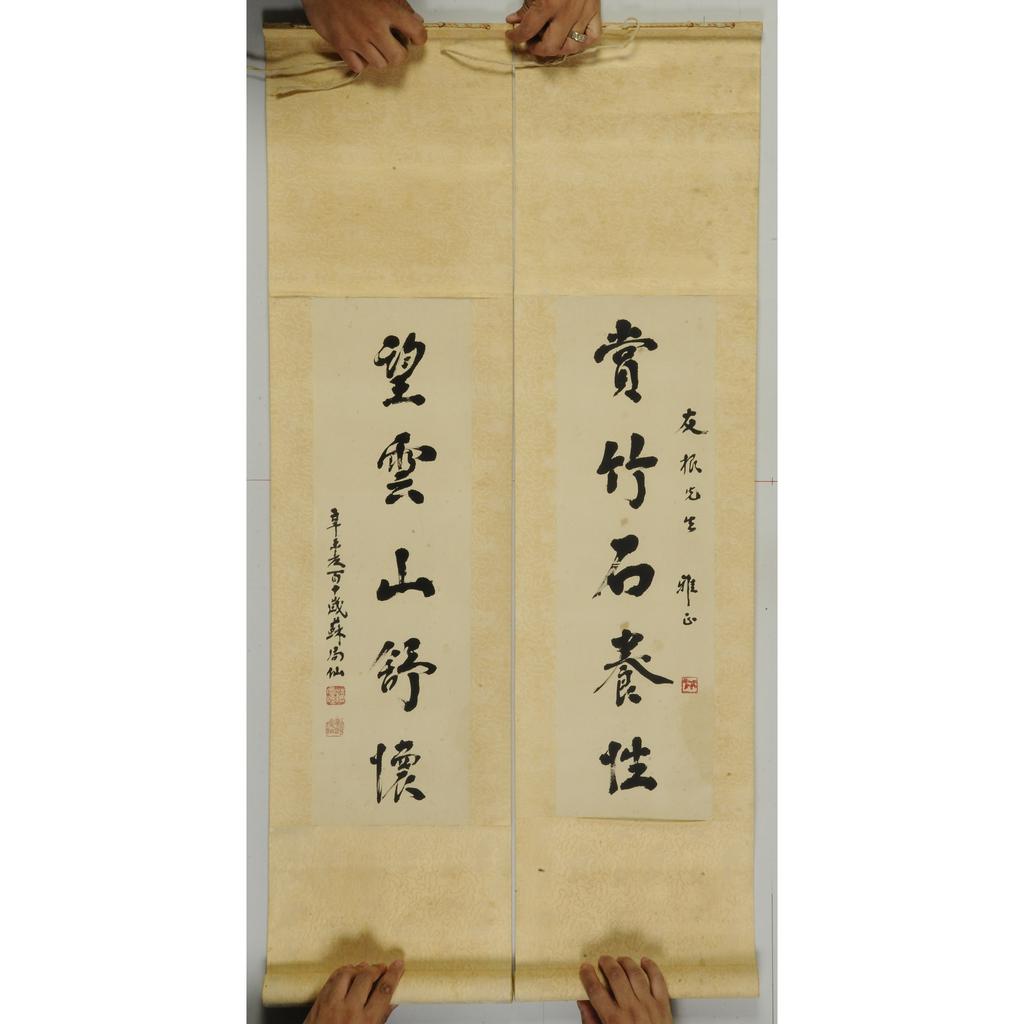 友根先生 雅正
賞竹石養性
望雲山舒懷
辛未百十歲蘇局仙